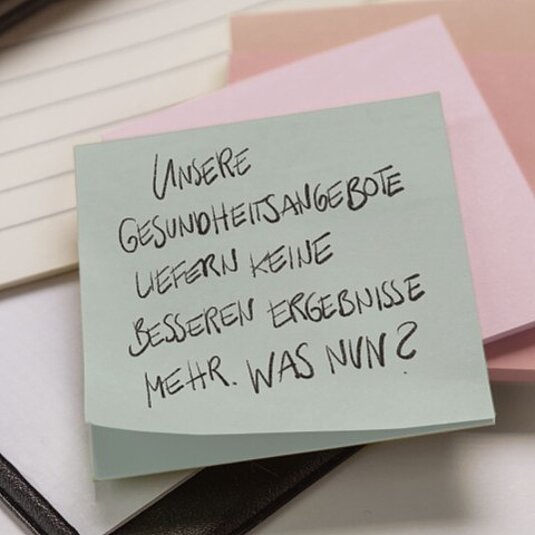 UNSERE
GESUNDHEITSANGEBOTE
LIEFERN KEINE
BESSEREN ERGEBNISSE
MEHR. WAS NUN?